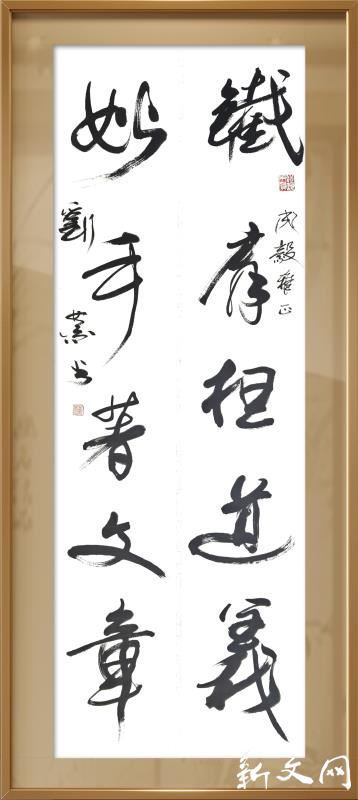 鐵肩担道義
成毅雅正
妙手著文章
劉书
新文网